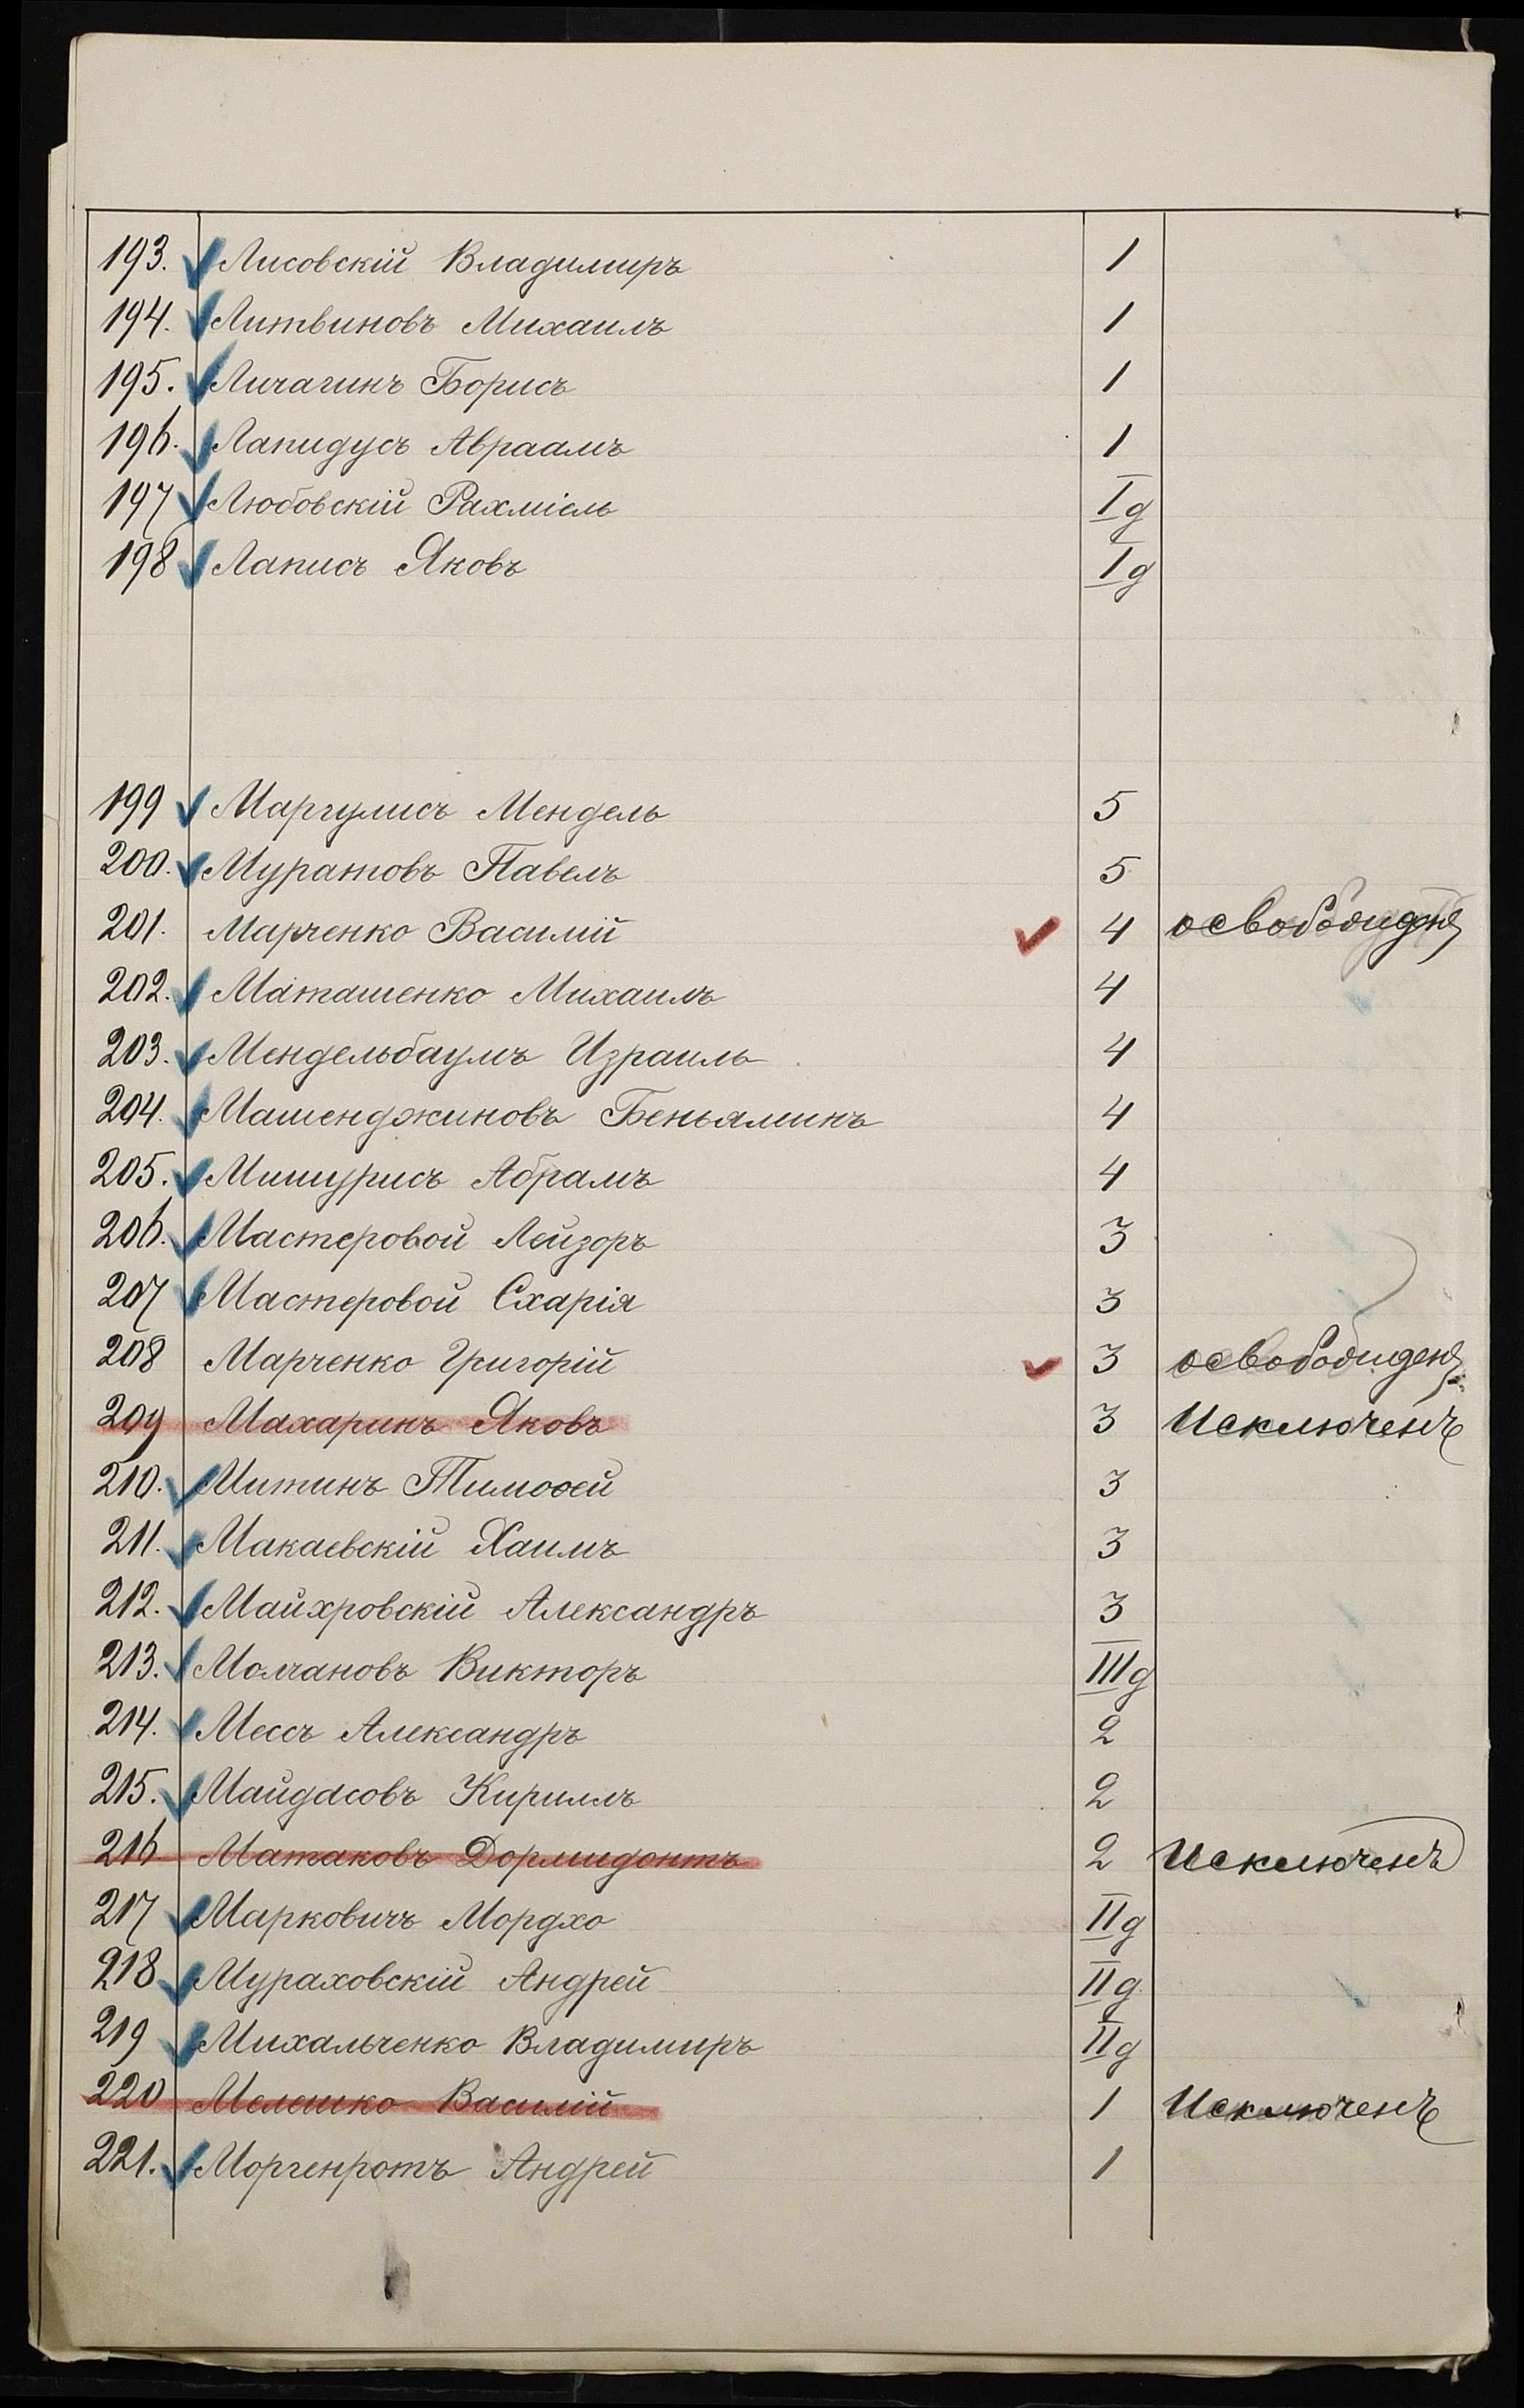 193. Лисовскій Владимиръ 1
194. Литвиновъ Михаилъ 1
195. Личагинъ Борисъ 1
196. Лапидусъ Авраамъ 1
197 Любовскій Рахміель Iд
198 Лаписъ Яковъ Iд
199 Маргулисъ Мендель 5
200. Муратовъ Павелъ 5
201. Марченко Василій 4 освобожденъ
202. Маташенко Михаилъ 4
203. Мендельбаумъ Израиль 4
204. Машенджиновъ Беньяминъ 4
205. Мишурисъ Абрамъ 4
206. Мастеровой Лейзоръ 3
207 Мастеровой Схарія 3
208 Марченко Григорій 3 освобожденъ
209 Махаринъ Яковъ 3 Исключенъ
210. Митинъ Тимоѳей 3
211. Макаевскій Хаимъ 3
212. Майхровскій Александръ 3
213. Молчановъ Викторъ IIIд
214. Мессъ Александръ 2
215. Майдасовъ Кириллъ 2
216 Матаковъ Дормидонтъ 2 Исключенъ
217 Марковичъ Мордхо IIд
218 Мураховскій Андрей IIд
219 Михальченко Владимиръ IIд
220 Мелешко Василій 1 Исключенъ
221. Моргенротъ Андрей 1